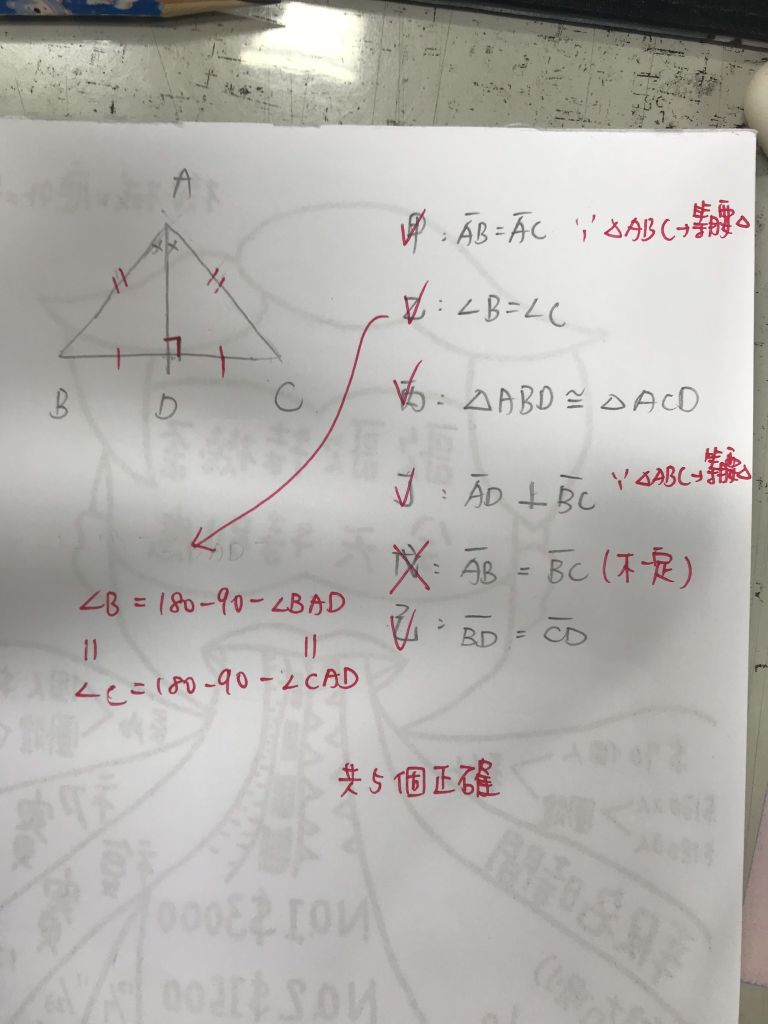 A
B D C
甲: AB = AC ∵ △ABC→等腰△
乙: ∠B=∠C
丙: △ABD ≅ △ACD
丁: AD ⊥ BC ∵ △ABC→等腰△
戊: AB = BC (不一定)
己: BD = CD
∠B = 180-90-∠BAD
∠C = 180-90-∠CAD
共5個正確